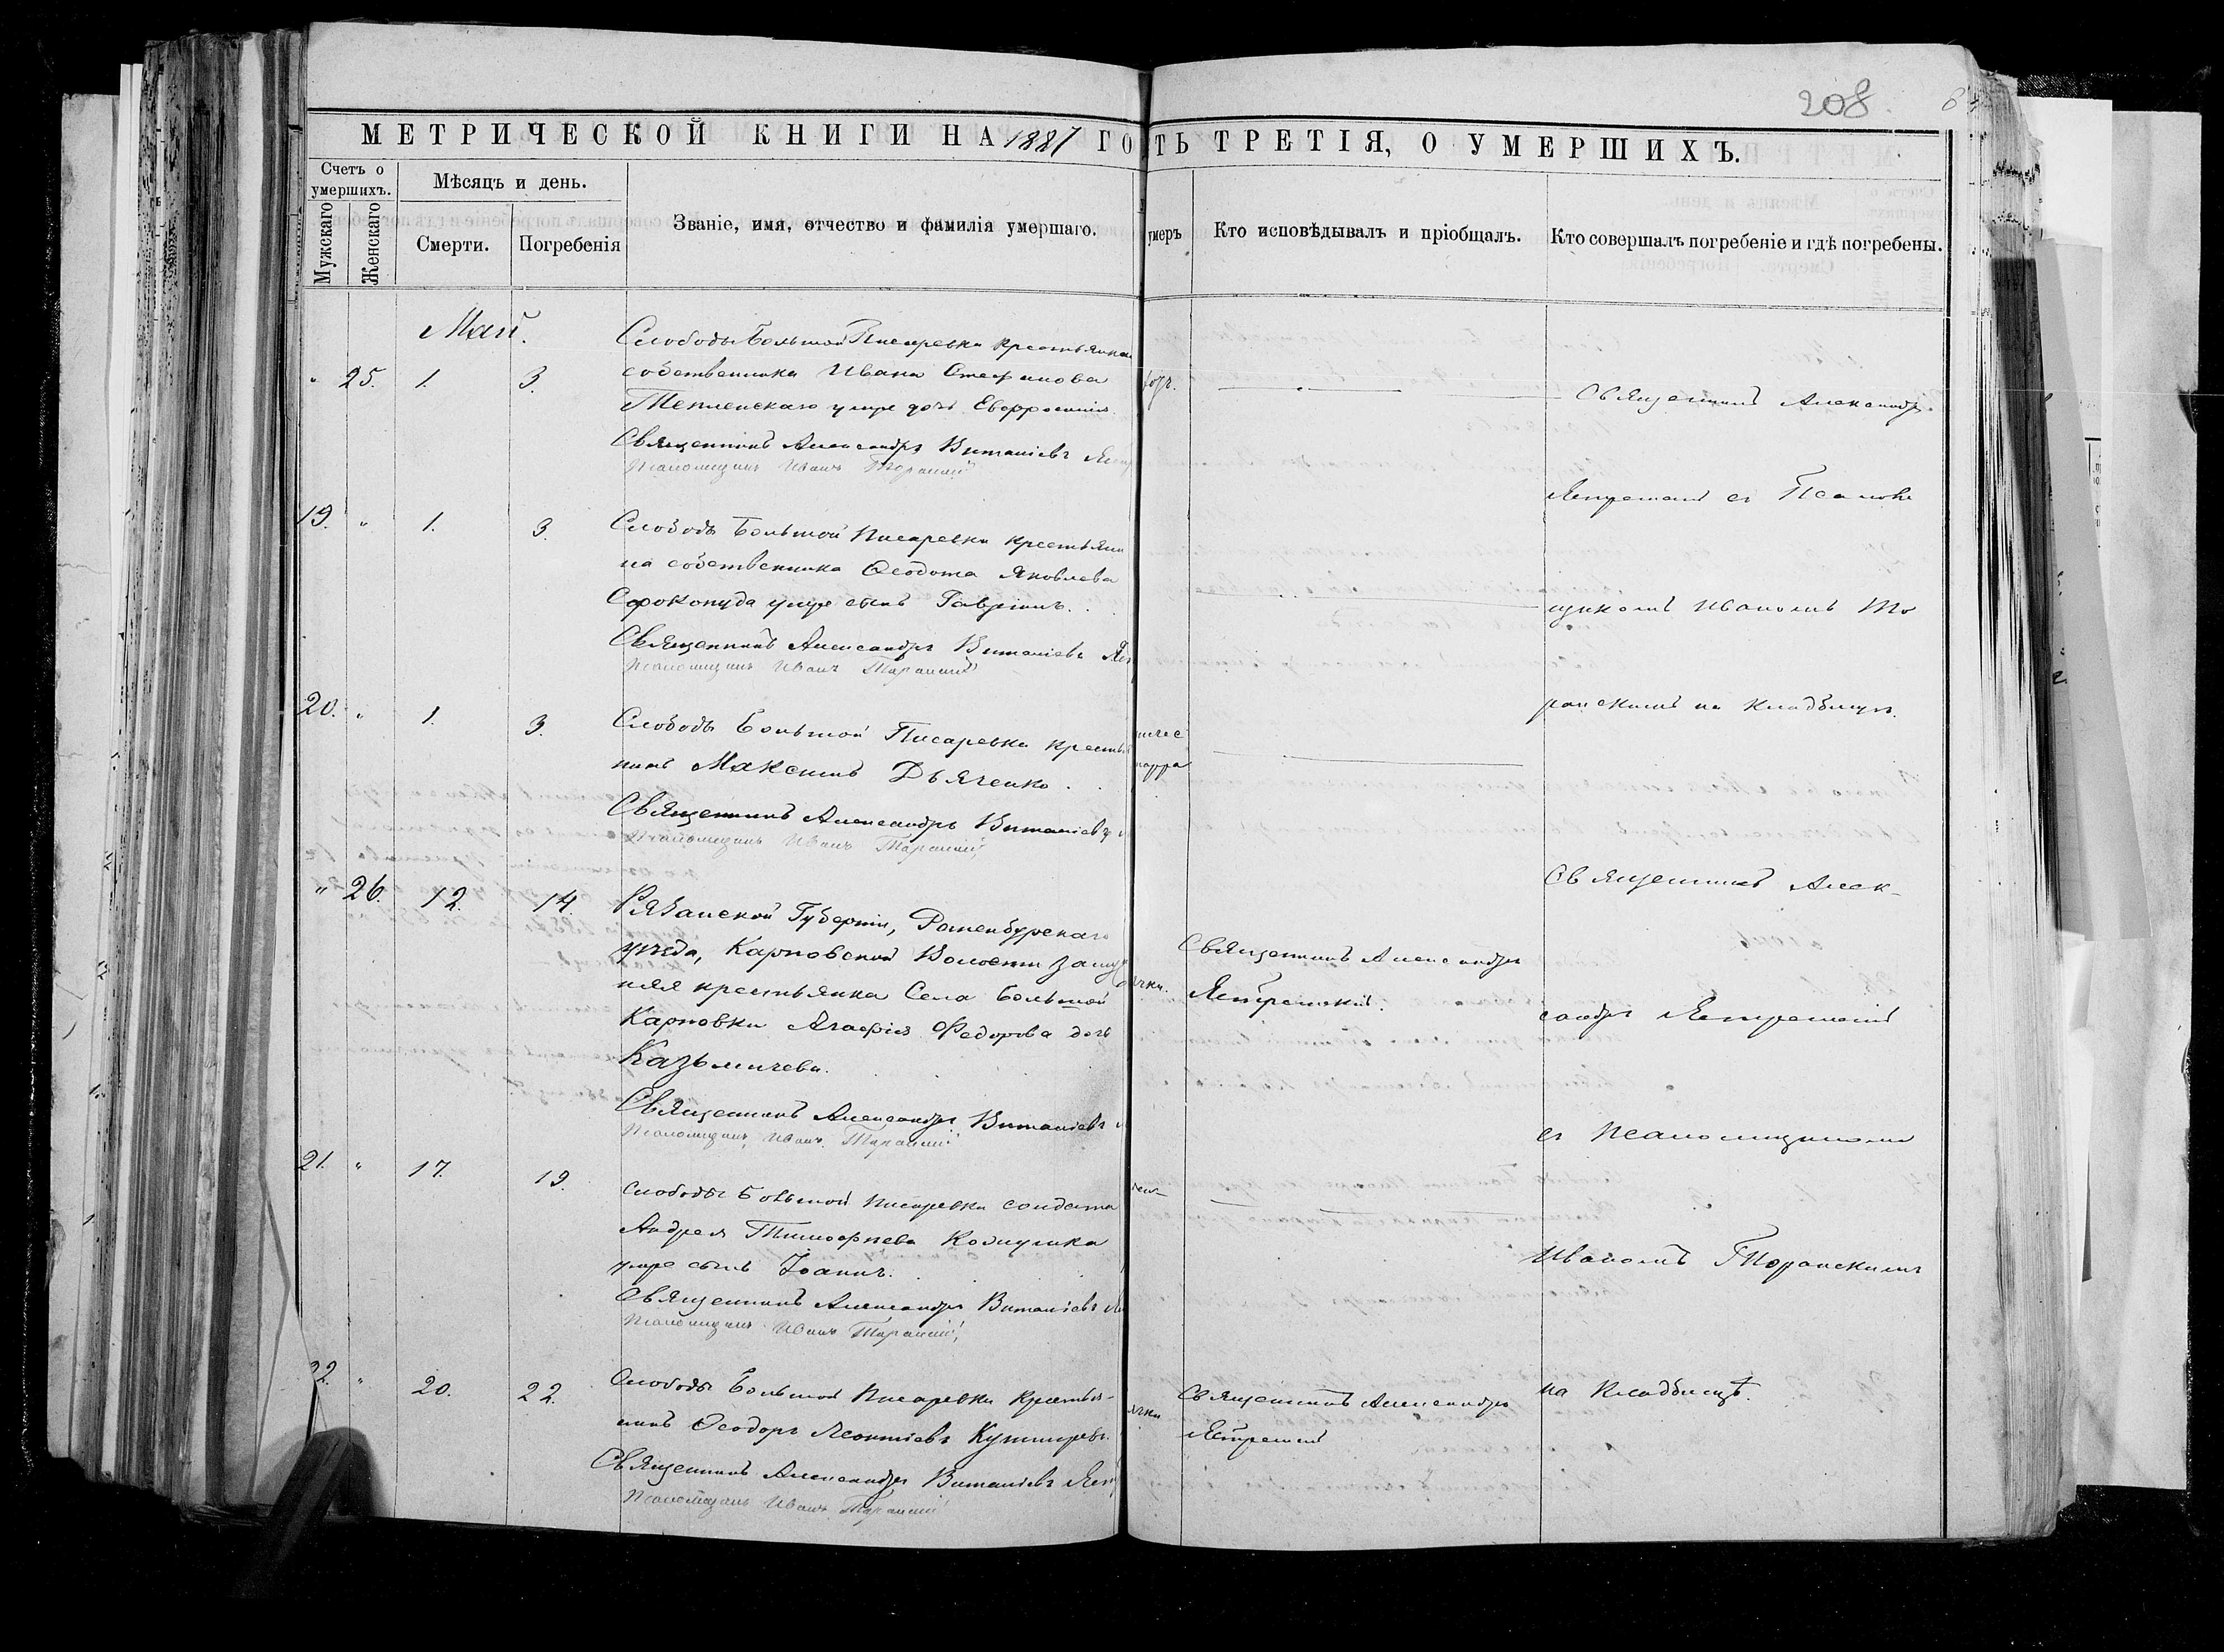 208.
МЕТРИЧЕСКОЙ КНИГИ НА 1887 ГО
ТЬ ТРЕТІЯ, О УМЕРШИХЪ.
Счетъ о умершихъ.
Мужскаго
Женскаго
Мѣсяцъ и день.
Смерти.
Погребенія
Званіе, имя, отчество и фамилія умершаго.
умеръ
Кто исповѣдывалъ и пріобщалъ.
Кто совершалъ погребеніе и гдѣ погребены.
Май.
" 25. 1. 3.
Слободы Большой Писаревки крестьянина
собственника Ивана Стефанова
умре дочь Евфросинія
Священникъ Александръ Витаніевъ
Псаломщикъ Иванъ Торанскій
Священникъ Александръ
Ястремскій съ Псаломщикомъ Иваномъ Торанскимъ на кладбищѣ.
19. " 1. 3.
Слободы Большой Писаревки крестьяни
на собственника Ѳеодота Яковлева
Сорокопуда умре сынъ Гавріилъ.
Священникъ Александръ Витаніевъ
Псаломщикъ Иванъ Торанскій
20. " 1. 3.
Слободы Большой Писаревки крестья
нинъ Максимъ Дьяченко.
Священникъ Александръ Витаніевъ
Псаломщикъ Иванъ Торанскій
" 26. 12. 14.
Рязанской Губерніи, Раненбурскаго
уѣзда, Карповской Волости
крестьянка Села Большой
Карповки Агафія Федорова дочь
Казьмичева.
Священникъ Александръ Витаніевъ
Псаломщикъ Иванъ Торанскій
Священникъ Александръ
Ястремскій.
Священникъ Алек-
сандръ Ястремскій
съ Псаломщикомъ
Иваномъ Торанскимъ
на кладбищѣ.
21. " 17. 19.
Слободы Большой Писаревки солдата
Андрея Тимофеева
умре сынъ Іоаннъ.
Священникъ Александръ Витаніевъ
Псаломщикъ Иванъ Торанскій
22. " 20. 22.
Слободы Большой Писаревки крестья-
нинъ Ѳеодоръ Леонтіевъ
Священникъ Александръ Витаніевъ
Псаломщикъ Иванъ Торанскій
Священникъ Александръ
Ястремскій